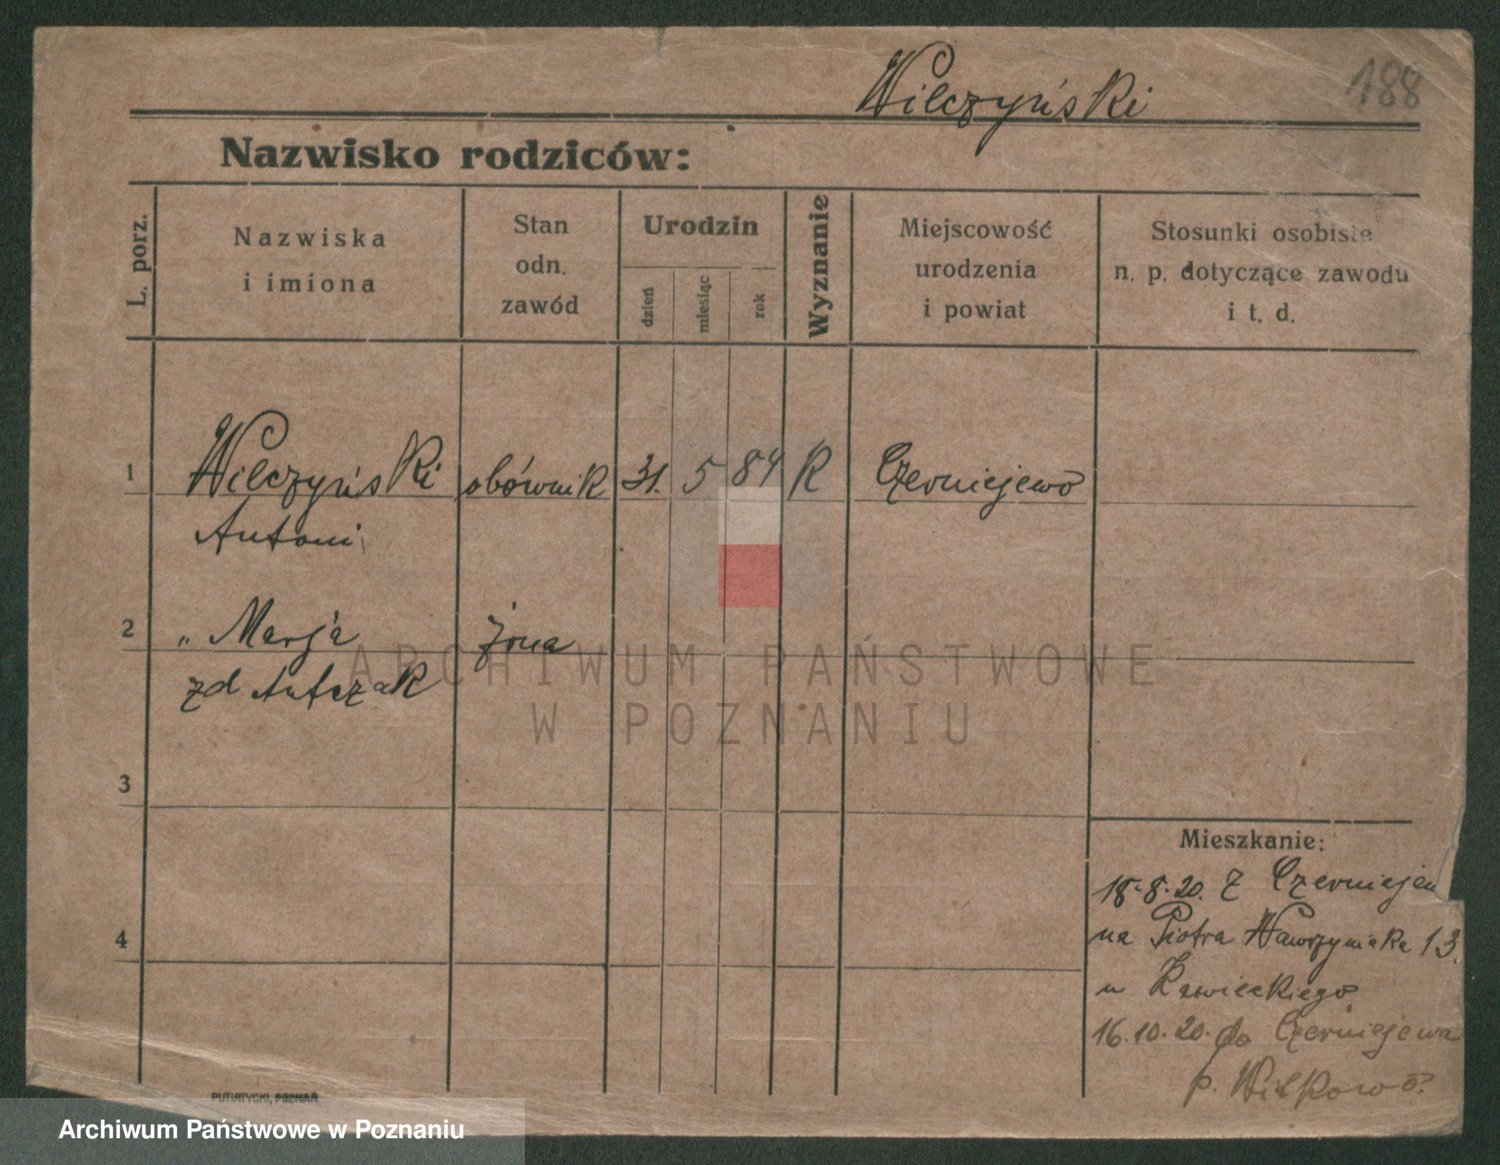 Wilczyński
188
Nazwisko rodziców:
L. porz.
Nazwiska
i imiona
Stan
odn.
zawód
Urodzin
dzień
miesiąc
rok
Wyznanie
Miejscowość
urodzenia
i powiat
Stosunki osobiste
n. p. dotyczące zawodu
i t. d.
1
Wilczyński
Antoni
obównik
31. 5 84
K
Czerniejewo
2
„ Marja
zd Antczak
żona
3
4
Mieszkanie:
18.8.20. z Czerniejew
na Piotra Wawrzyniaka 13.
u
16.10.20. do Czerniejewa
p. Witkowo.
PUTIATYCKI, POZNAŃ
ARCHIWUM PAŃSTWOWE
W POZNANIU
Archiwum Państwowe w Poznaniu